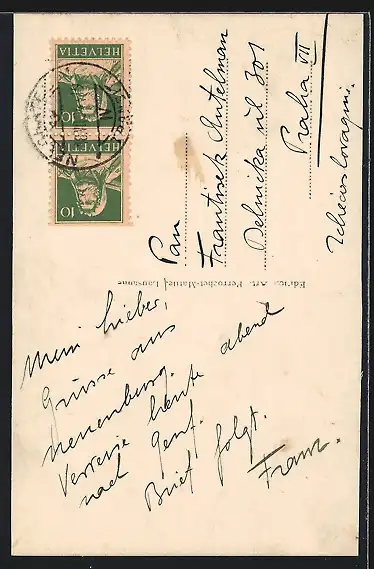 HELVETIA
10
HELVETIA
10
Pan
Frantisek
Delnicka ul 301
Praha VII
Tchécoslovaquie.
Edit. Art. Perrochet-Matile, Lausanne
Mein Lieber,
Grüsse aus
Neuenburg.
Verreise heute abend
nach Genf.
Brief folgt.
Franz.